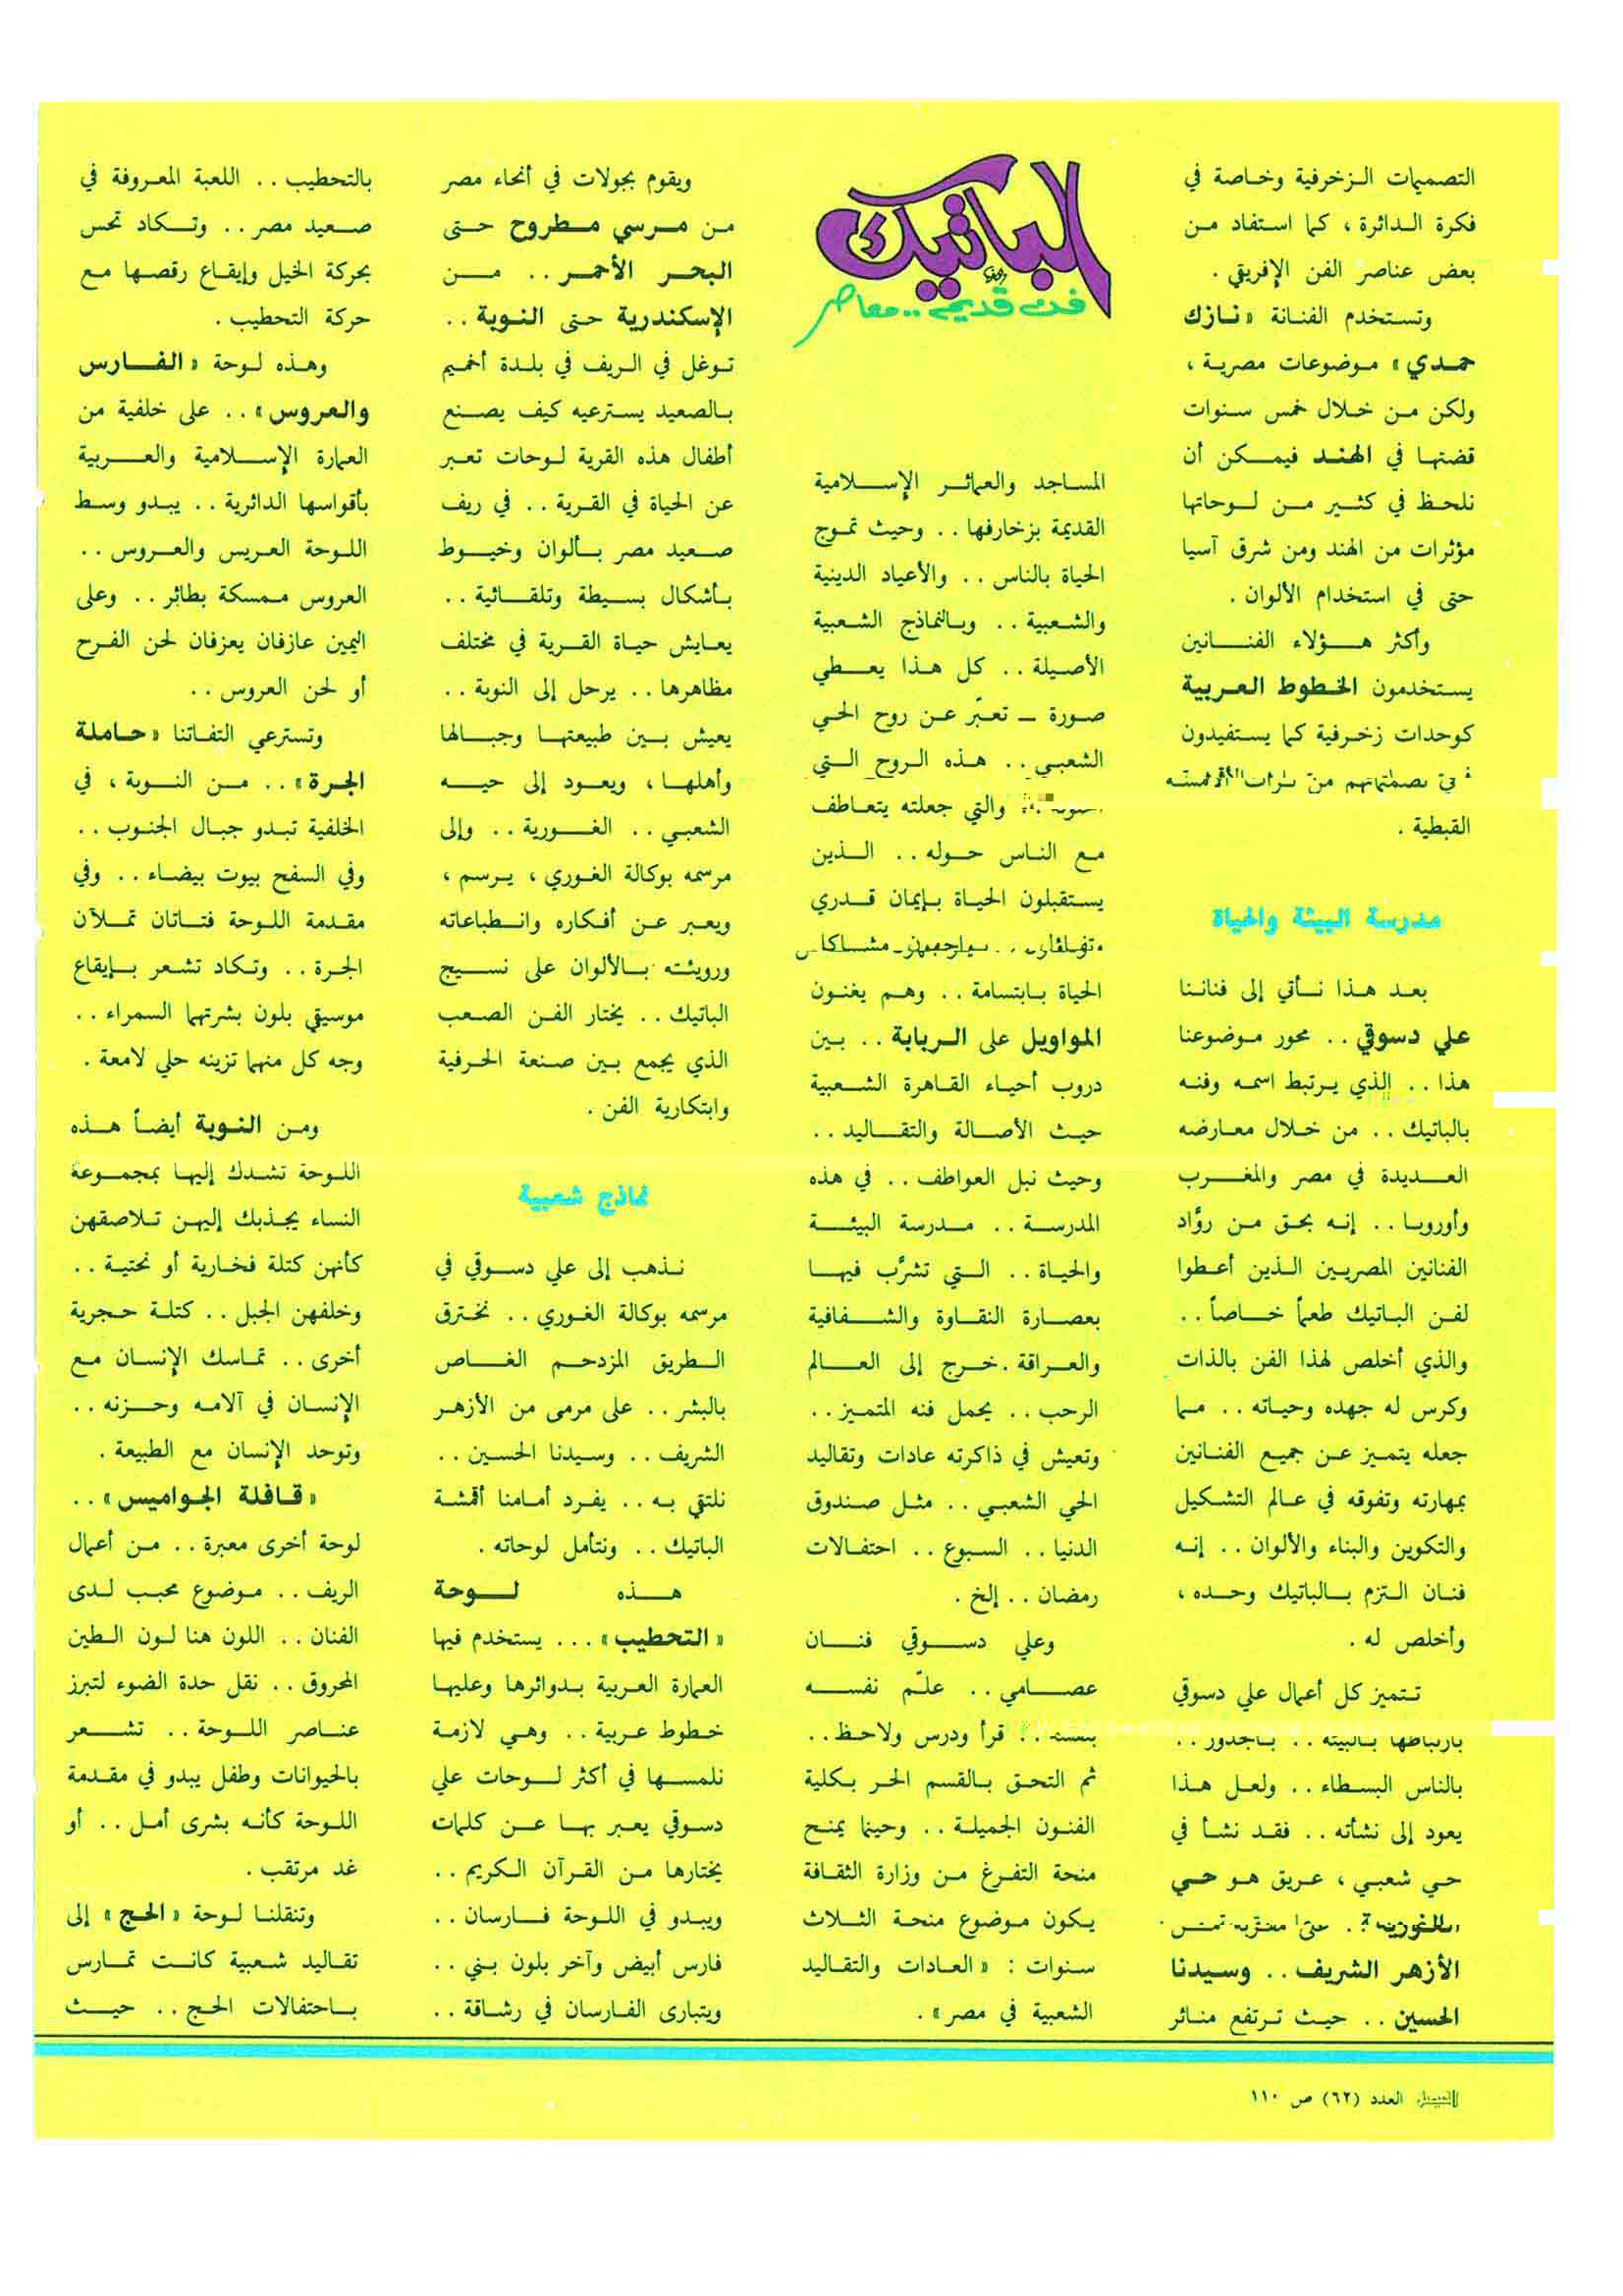 التصميمات الزخرفية وخاصة في
فكرة الدائرة ، كما استفاد من
بعض عناصر الفن الإفريقي .
وتستخدم الفنانة « نازك
حمدي » موضوعات مصرية ،
ولكن من خلال خمس سنوات
قضتها في الهند فيمكن أن
نلحظ في كثير من لوحاتها
مؤثرات من الهند ومن شرق آسيا
حتى في استخدام الألوان .
وأكثر هؤلاء الفنانين
يستخدمون الخطوط العربية
كوحدات زخرفية كما يستفيدون
في تصميماتهم من تراث الأقمشة
القبطية .
مدرسة البيئة والحياة
بعد هذا نأتي إلى فناننا
علي دسوقي . . محور موضوعنا
هذا . . الذي يرتبط اسمه وفنه
بالباتيك . . من خلال معارضه
العديدة في مصر والمغرب
وأوروبا . . إنه بحق من روَّاد
الفنانين المصريين الذين أعطوا
لفن الباتيك طعماً خاصاً . .
والذي أخلص لهذا الفن بالذات
وكرس له جهده وحياته . . مما
جعله يتميز عن جميع الفنانين
بمهارته وتفوقه في عالم التشكيل
والتكوين والبناء والألوان . . إنه
فنان التزم بالباتيك وحده ،
وأخلص له .
تتميز كل أعمال علي دسوقي
بارتباطها بالبيئة . . بالجذور . .
بالناس البسطاء . . ولعل هذا
يعود إلى نشأته . . فقد نشأ في
حي شعبي ، عريق هو حي
الغورية . . على مقربة من
الأزهر الشريف . . وسيدنا
الحسين . . حيث ترتفع منائر
الباتيك
فن قديم .. معاصر
المساجد والعمائر الإسلامية
القديمة بزخارفها . . وحيث تموج
الحياة بالناس . . والأعياد الدينية
والشعبية . . وبالنماذج الشعبية
الأصيلة . . كل هذا يعطي
صورة ــ تعبّر عن روح الحي
الشعبي . . هذه الروح التي
والتي جعلته يتعاطف
مع الناس حوله . . الذين
يستقبلون الحياة بإيمان قدري
يواجهون مشاكل
الحياة بابتسامة . . وهم يغنون
المواويل على الربابة . . بين
دروب أحياء القاهرة الشعبية
حيث الأصالة والتقاليد . .
وحيث نبل العواطف . . في هذه
المدرسة . . مدرسة البيئة
والحياة . . التي تشرَّب فيها
بعصارة النقاوة والشفافية
والعراقة . خرج إلى العالم
الرحب . . يحمل فنه المتميز . .
وتعيش في ذاكرته عادات وتقاليد
الحي الشعبي . . مثل صندوق
الدنيا . . السبوع . . احتفالات
رمضان . . إلخ .
وعلي دسوقي فنان
عصامي . . علّم نفسه
بنفسه . . قرأ ودرس ولاحظ . .
ثم التحق بالقسم الحر بكلية
الفنون الجميلة . . وحينما يمنح
منحة التفرغ من وزارة الثقافة
يكون موضوع منحة الثلاث
سنوات : « العادات والتقاليد
الشعبية في مصر » .
ويقوم بجولات في أنحاء مصر
من مرسي مطروح حتى
البحر الأحمر . . من
الإسكندرية حتى النوبة . .
توغل في الريف في بلدة أخميم
بالصعيد يسترعيه كيف يصنع
أطفال هذه القرية لوحات تعبر
عن الحياة في القرية . . في ريف
صعيد مصر بألوان وخيوط
بأشكال بسيطة وتلقائية . .
يعايش حياة القرية في مختلف
مظاهرها . . يرحل إلى النوبة . .
يعيش بين طبيعتها وجبالها
وأهلها ، ويعود إلى حيه
الشعبي . . الغورية . . وإلى
مرسمه بوكالة الغوري ، يرسم ،
ويعبر عن أفكاره وانطباعاته
ورويته بالألوان على نسيج
الباتيك . . يختار الفن الصعب
الذي يجمع بين صنعة الحرفية
وابتكارية الفن .
نماذج شعبية
نذهب إلى علي دسوقي في
مرسمه بوكالة الغوري . . نخترق
الطريق المزدحم الغاص
بالبشر . . على مرمى من الأزهر
الشريف . . وسيدنا الحسين . .
نلتقي به . . يفرد أمامنا أقمشة
الباتيك . . ونتأمل لوحاته .
هذه لوحة
« التحطيب » . . . يستخدم فيها
العمارة العربية بدوائرها وعليها
خطوط عربية . . وهي لازمة
نلمسها في أكثر لوحات علي
دسوقي يعبر بها عن كلمات
يختارها من القرآن الكريم . .
ويبدو في اللوحة فارسان . .
فارس أبيض وآخر بلون بني . .
ويتبارى الفارسان في رشاقة . .
بالتحطيب . . اللعبة المعروفة في
صعيد مصر . . وتكاد تحس
بحركة الخيل وإيقاع رقصها مع
حركة التحطيب .
وهذه لوحة « الفارس
والعروس » . . على خلفية من
العمارة الإسلامية والعربية
بأقواسها الدائرية . . يبدو وسط
اللوحة العريس والعروس . .
العروس ممسكة بطائر . . وعلى
اليمين عازفان يعزفان لحن الفرح
أو لحن العروس . .
وتسترعي التفاتنا « حاملة
الجرة » . . من النوبة ، في
الخلفية تبدو جبال الجنوب . .
وفي السفح بيوت بيضاء . . وفي
مقدمة اللوحة فتاتان تملآن
الجرة . . وتكاد تشعر بإيقاع
موسيقي بلون بشرتهما السمراء . .
وجه كل منهما تزينه حلي لامعة .
ومن النوبة أيضاً هذه
اللوحة تشدك إليها بمجموعة
النساء يجذبك إليهن تلاصقهن
كأنهن كتلة فخارية أو نحتية . .
وخلفهن الجبل . . كتلة حجرية
أخرى . . تماسك الإنسان مع
الإنسان في آلامه وحزنه . .
وتوحد الإنسان مع الطبيعة .
« قافلة الجواميس » . .
لوحة أخرى معبرة . . من أعمال
الريف . . موضوع محبب لدى
الفنان . . اللون هنا لون الطين
المحروق . . نقل حدة الضوء لتبرز
عناصر اللوحة . . تشعر
بالحيوانات وطفل يبدو في مقدمة
اللوحة كأنه بشرى أمل . . أو
غد مرتقب .
وتنقلنا لوحة « الحج » إلى
تقاليد شعبية كانت تمارس
باحتفالات الحج . . حيث
الفيصل العدد (٦٢) ص ١١٠